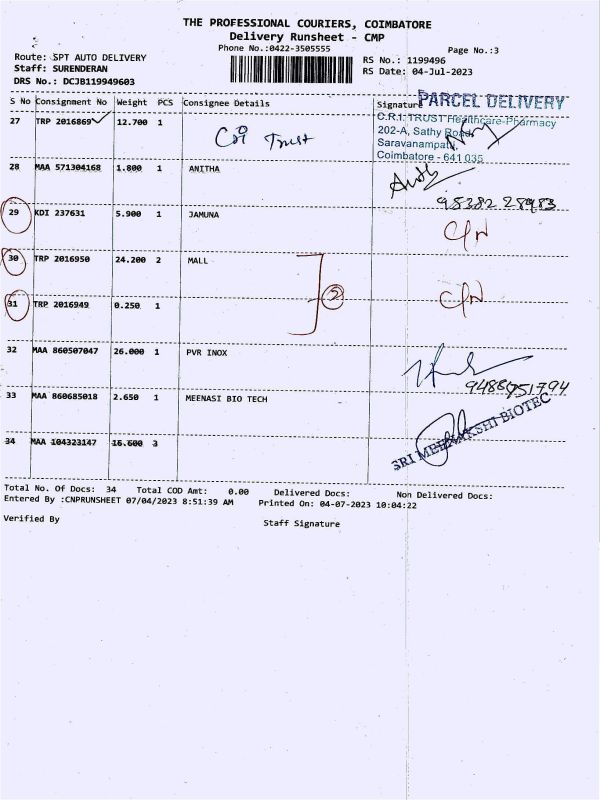 THE PROFESSIONAL COURIERS, COIMBATORE
Delivery Runsheet - CMP
Phone No.:0422-3505555
Page No.:3
Route: SPT AUTO DELIVERY
Staff: SURENDERAN
DRS No.: DCJB119949603
RS No.: 1199496
RS Date: 04-Jul-2023
S No Consignment No Weight PCS Consignee Details Signature
PARCEL DELIVERY
27 TRP 2016869 12.700 1 Cri Trust
C.R.I. TRUST Healthcare-Pharmacy
202-A, Sathy Road,
Saravanampatti,
Coimbatore - 641 035
28 MAA 571304168 1.800 1 ANITHA
29 KDI 237631 5.900 1 JAMUNA
30 TRP 2016950 24.200 2 MALL
2
31 TRP 2016949 0.250 1
32 MAA 860507047 26.000 1 PVR INOX
33 MAA 860685018 2.650 1 MEENASI BIO TECH
SRI MEENAKSHI BIOTEC
34 MAA 104323147 16.600 3
Total No. Of Docs: 34 Total COD Amt: 0.00 Delivered Docs: Non Delivered Docs:
Entered By :CNPRUNSHEET 07/04/2023 8:51:39 AM Printed On: 04-07-2023 10:04:22
Verified By Staff Signature